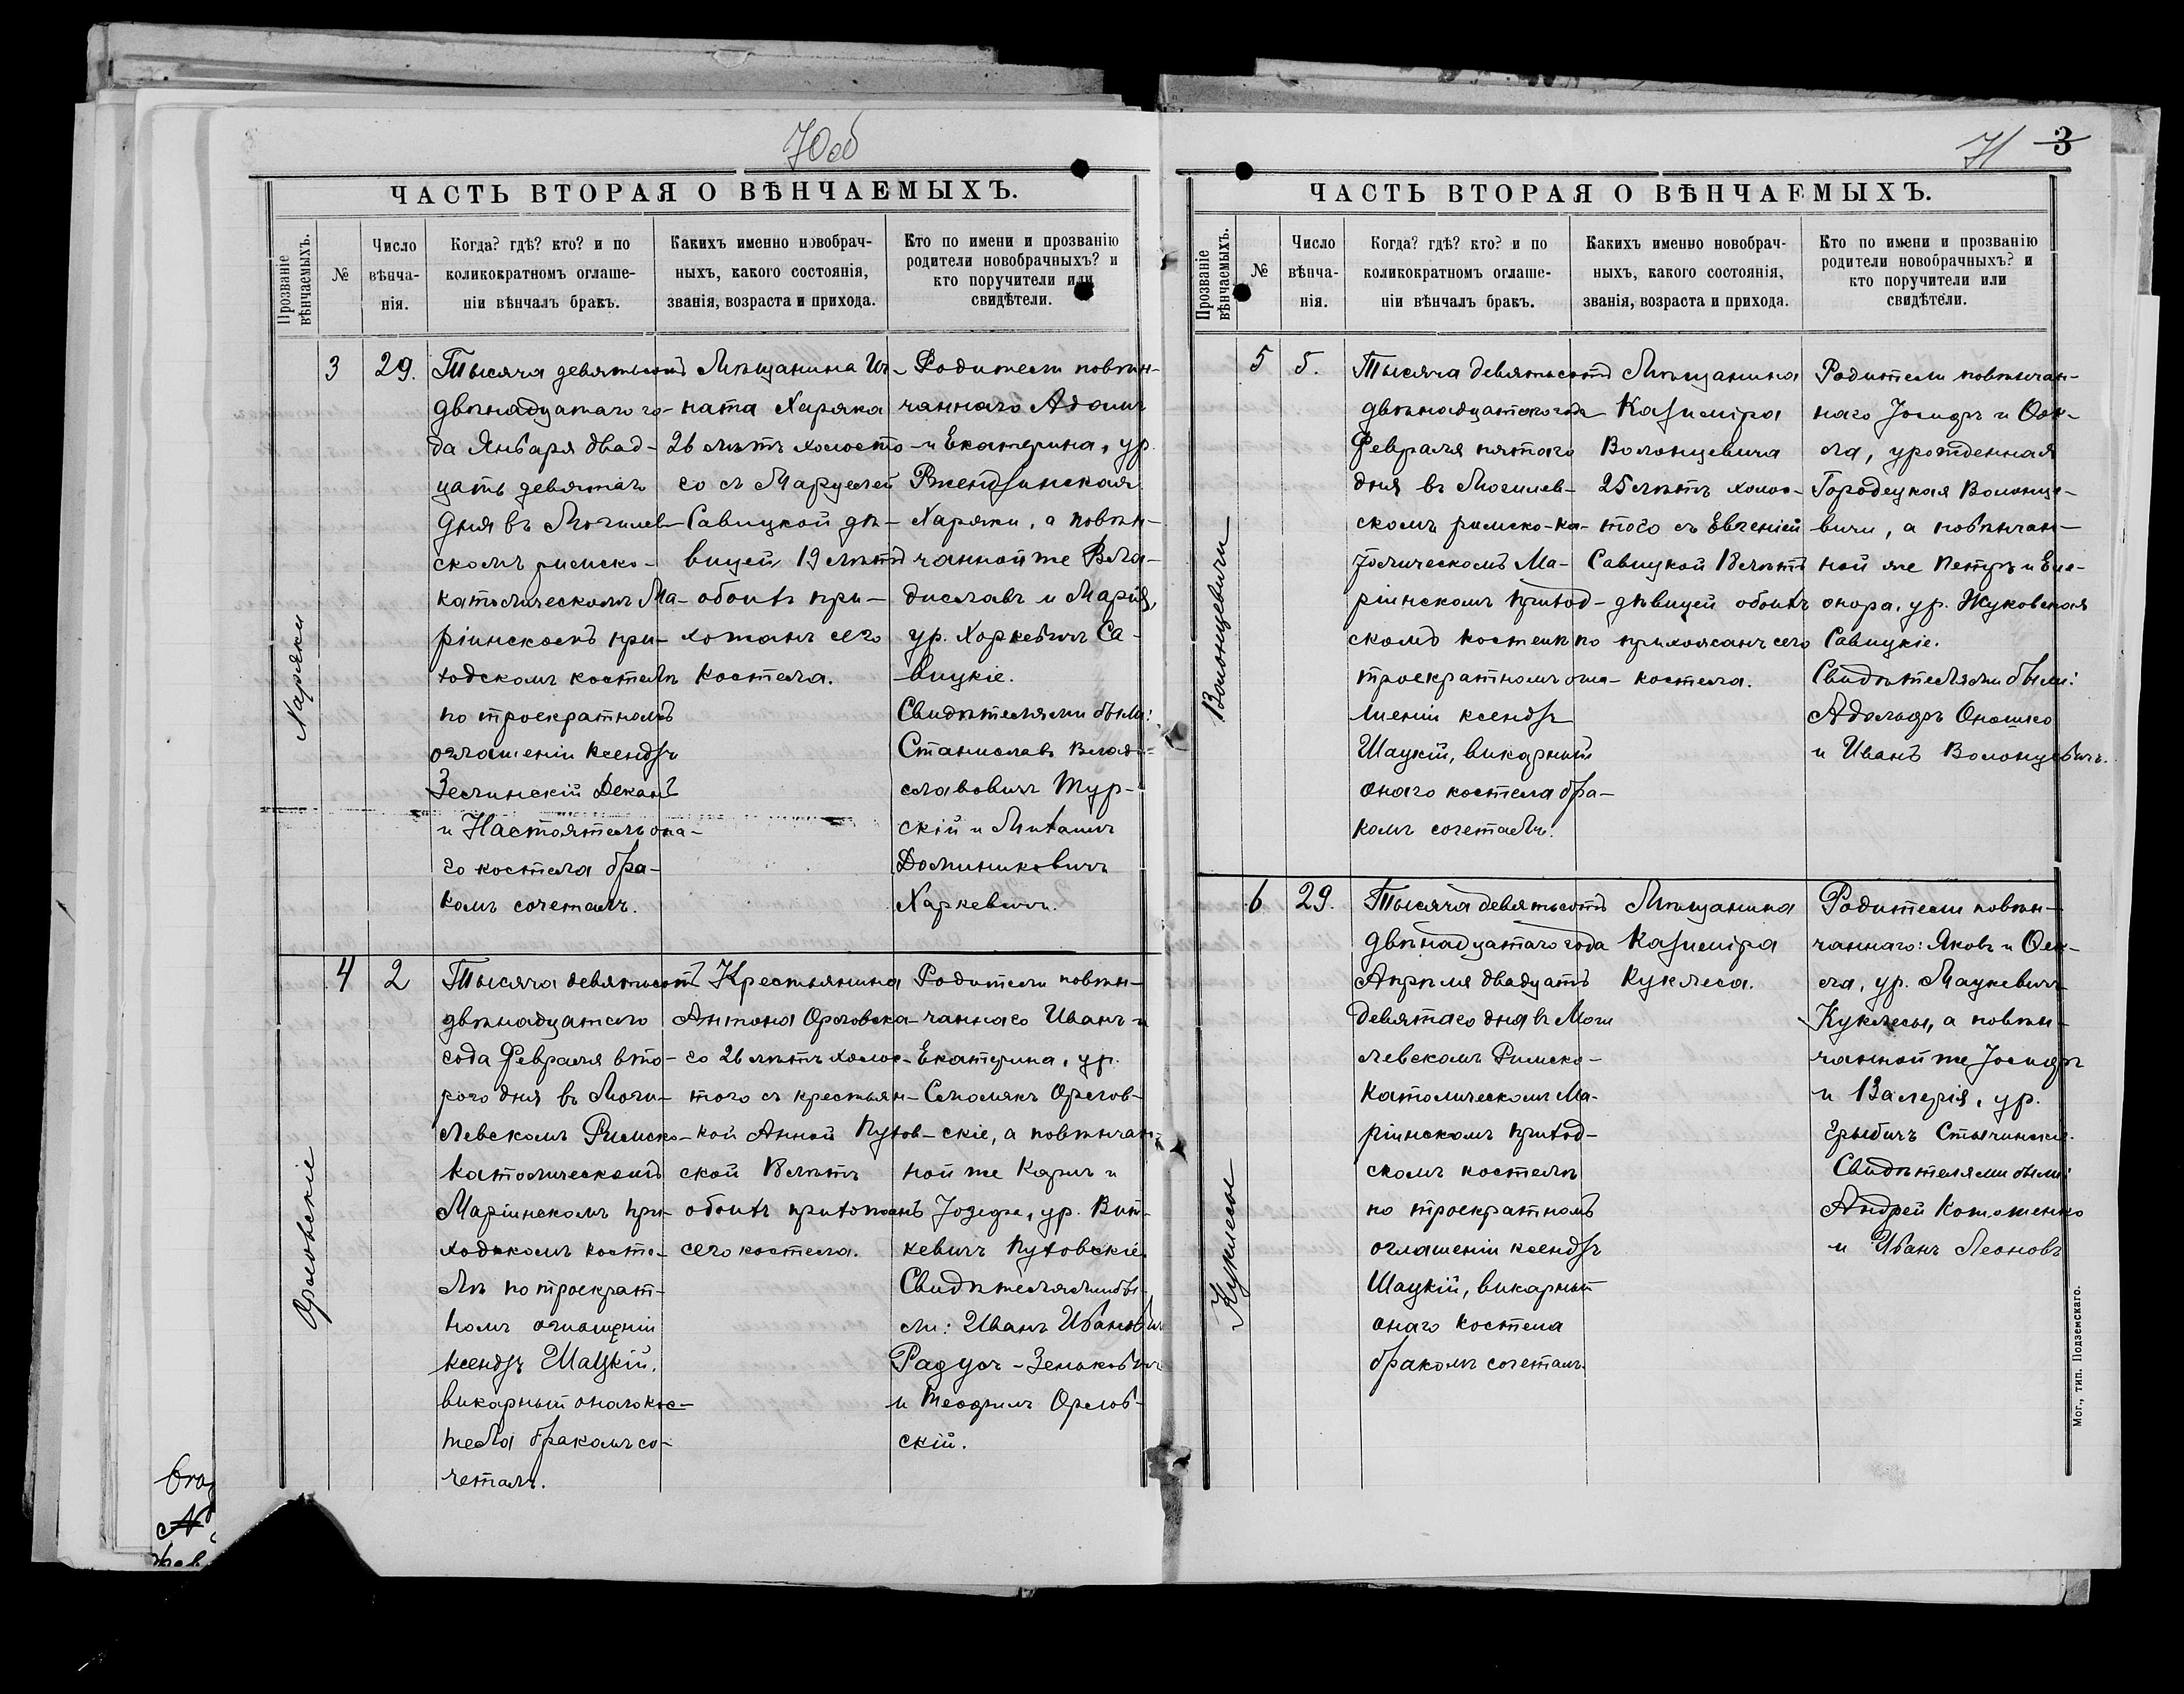 70об
ЧАСТЬ ВТОРАЯ О ВѢНЧАЕМЫХЪ.
Прозваніе вѣнчаемыхъ.
№
Число
вѣнча-
нія.
Когда? гдѣ? кто? и по
коликократномъ оглаше-
ніи вѣнчалъ бракъ.
Какихъ именно новобрач-
ныхъ, какого состоянія,
званія, возраста и прихода.
Кто по имени и прозванію
родители новобрачныхъ? и
кто поручители или
свидѣтели.
Харяки
3
29.
Тысяча девятьсотъ
двѣнадцатаго го-
да Января двад-
цать девятаго
дня въ Могилев-
скомъ римско-
католическомъ Ма-
ріинскомъ при-
ходскомъ костелѣ
по троекратномъ
оглашеніи ксендзъ
Зелинскій Деканъ
и Настоятель она-
го костела бра-
комъ сочеталъ.
Мѣщанина Иг-
ната Харяка
26 лѣтъ холосто-
го съ Марулей
Савицкой дѣ-
вицей 19 лѣтъ
обоихъ при-
хожанъ сего
костела.
Родители повѣн-
чаннаго Адамъ
и Екатерина, ур.
Ржендзинская
Харяки, а повѣн-
чанной же Вла-
диславъ и Марія,
ур. Харкевичъ Са-
вицкіе.
Свидѣтелями были:
Станиславъ Влади-
славовичъ Тур-
скій и Михаилъ
Доминиковичъ
Харкевичъ.
Орловскіе
4
2
Тысяча девятьсотъ
двѣнадцатаго
года Февраля вто-
рого дня въ Моги-
левскомъ Римско-
католическомъ
Маріинскомъ при-
ходскомъ косте-
лѣ по троекрат-
номъ оглашеніи
ксендзъ Шацкій,
викарный онаго кос-
тела бракомъ со-
четалъ.
Крестьянина
Антона Орловска-
го 26 лѣтъ холос-
того съ крестьян-
кой Анной Пухов-
ской 18 лѣтъ
обоихъ прихожанъ
сего костела.
Родители повѣн-
чаннаго Иванъ и
Екатерина, ур.
Семолякъ Орлов-
скіе, а повѣнчан-
ной же Карлъ и
Жозефа, ур. Вит-
кевичъ Пуховскіе.
Свидѣтелями бы-
ли: Иванъ Ивановичъ
Радуся-Зеньковичъ
и Теофилъ Орлов-
скій.
71 3
ЧАСТЬ ВТОРАЯ О ВѢНЧАЕМЫХЪ.
Прозваніе вѣнчаемыхъ.
№
Число
вѣнча-
нія.
Когда? гдѣ? кто? и по
коликократномъ оглаше-
ніи вѣнчалъ бракъ.
Какихъ именно новобрач-
ныхъ, какого состоянія,
званія, возраста и прихода.
Кто по имени и прозванію
родители новобрачныхъ? и
кто поручители или
свидѣтели.
Волонцевичи
5
5.
Тысяча девятьсотъ
двѣнадцатаго года
Февраля пятаго
дня въ Могилев-
скомъ римско-ка-
толическомъ Ма-
ріинскомъ приход-
скомъ костелѣ по
троекратномъ огла-
шеніи ксендзъ
Шацкій, викарный
онаго костела бра-
комъ сочеталъ.
Мѣщанина
Казиміра
Волонцевича
25 лѣтъ холос-
того съ Евгеніей
Савицкой 18 лѣтъ
дѣвицей обоихъ
прихожанъ сего
костела.
Родители повѣнчан-
наго Іосифъ и Оек-
ла, урожденная
Городецкая Волонце-
вичи, а повѣнчан-
ной же Петръ и Еле-
онора, ур. Жуковская
Савицкіе.
Свидѣтелями были:
Адольфъ Оношко
и Иванъ Волонцевичъ.
Куклесы
6
29.
Тысяча девятьсотъ
двѣнадцатаго года
Апрѣля двадцать
девятаго дня въ Моги
левскомъ Римско-
католическомъ Ма-
ріинскомъ приход-
скомъ костелѣ
по троекратномъ
оглашеніи ксендзъ
Шацкій, викарный
онаго костела
бракомъ сочеталъ.
Мѣщанина
Казиміра
Куклеса.
Родители повѣн-
чаннаго: Яковъ и Оек-
ла, ур. Мацкевичъ
Куклесы, а повѣн-
чанной же Іосифъ
и Валерія, ур.
Грыбичъ
Свидѣтелями были:
Андрей
и Иванъ Леоновъ
Мог., тип. Подземскаго.